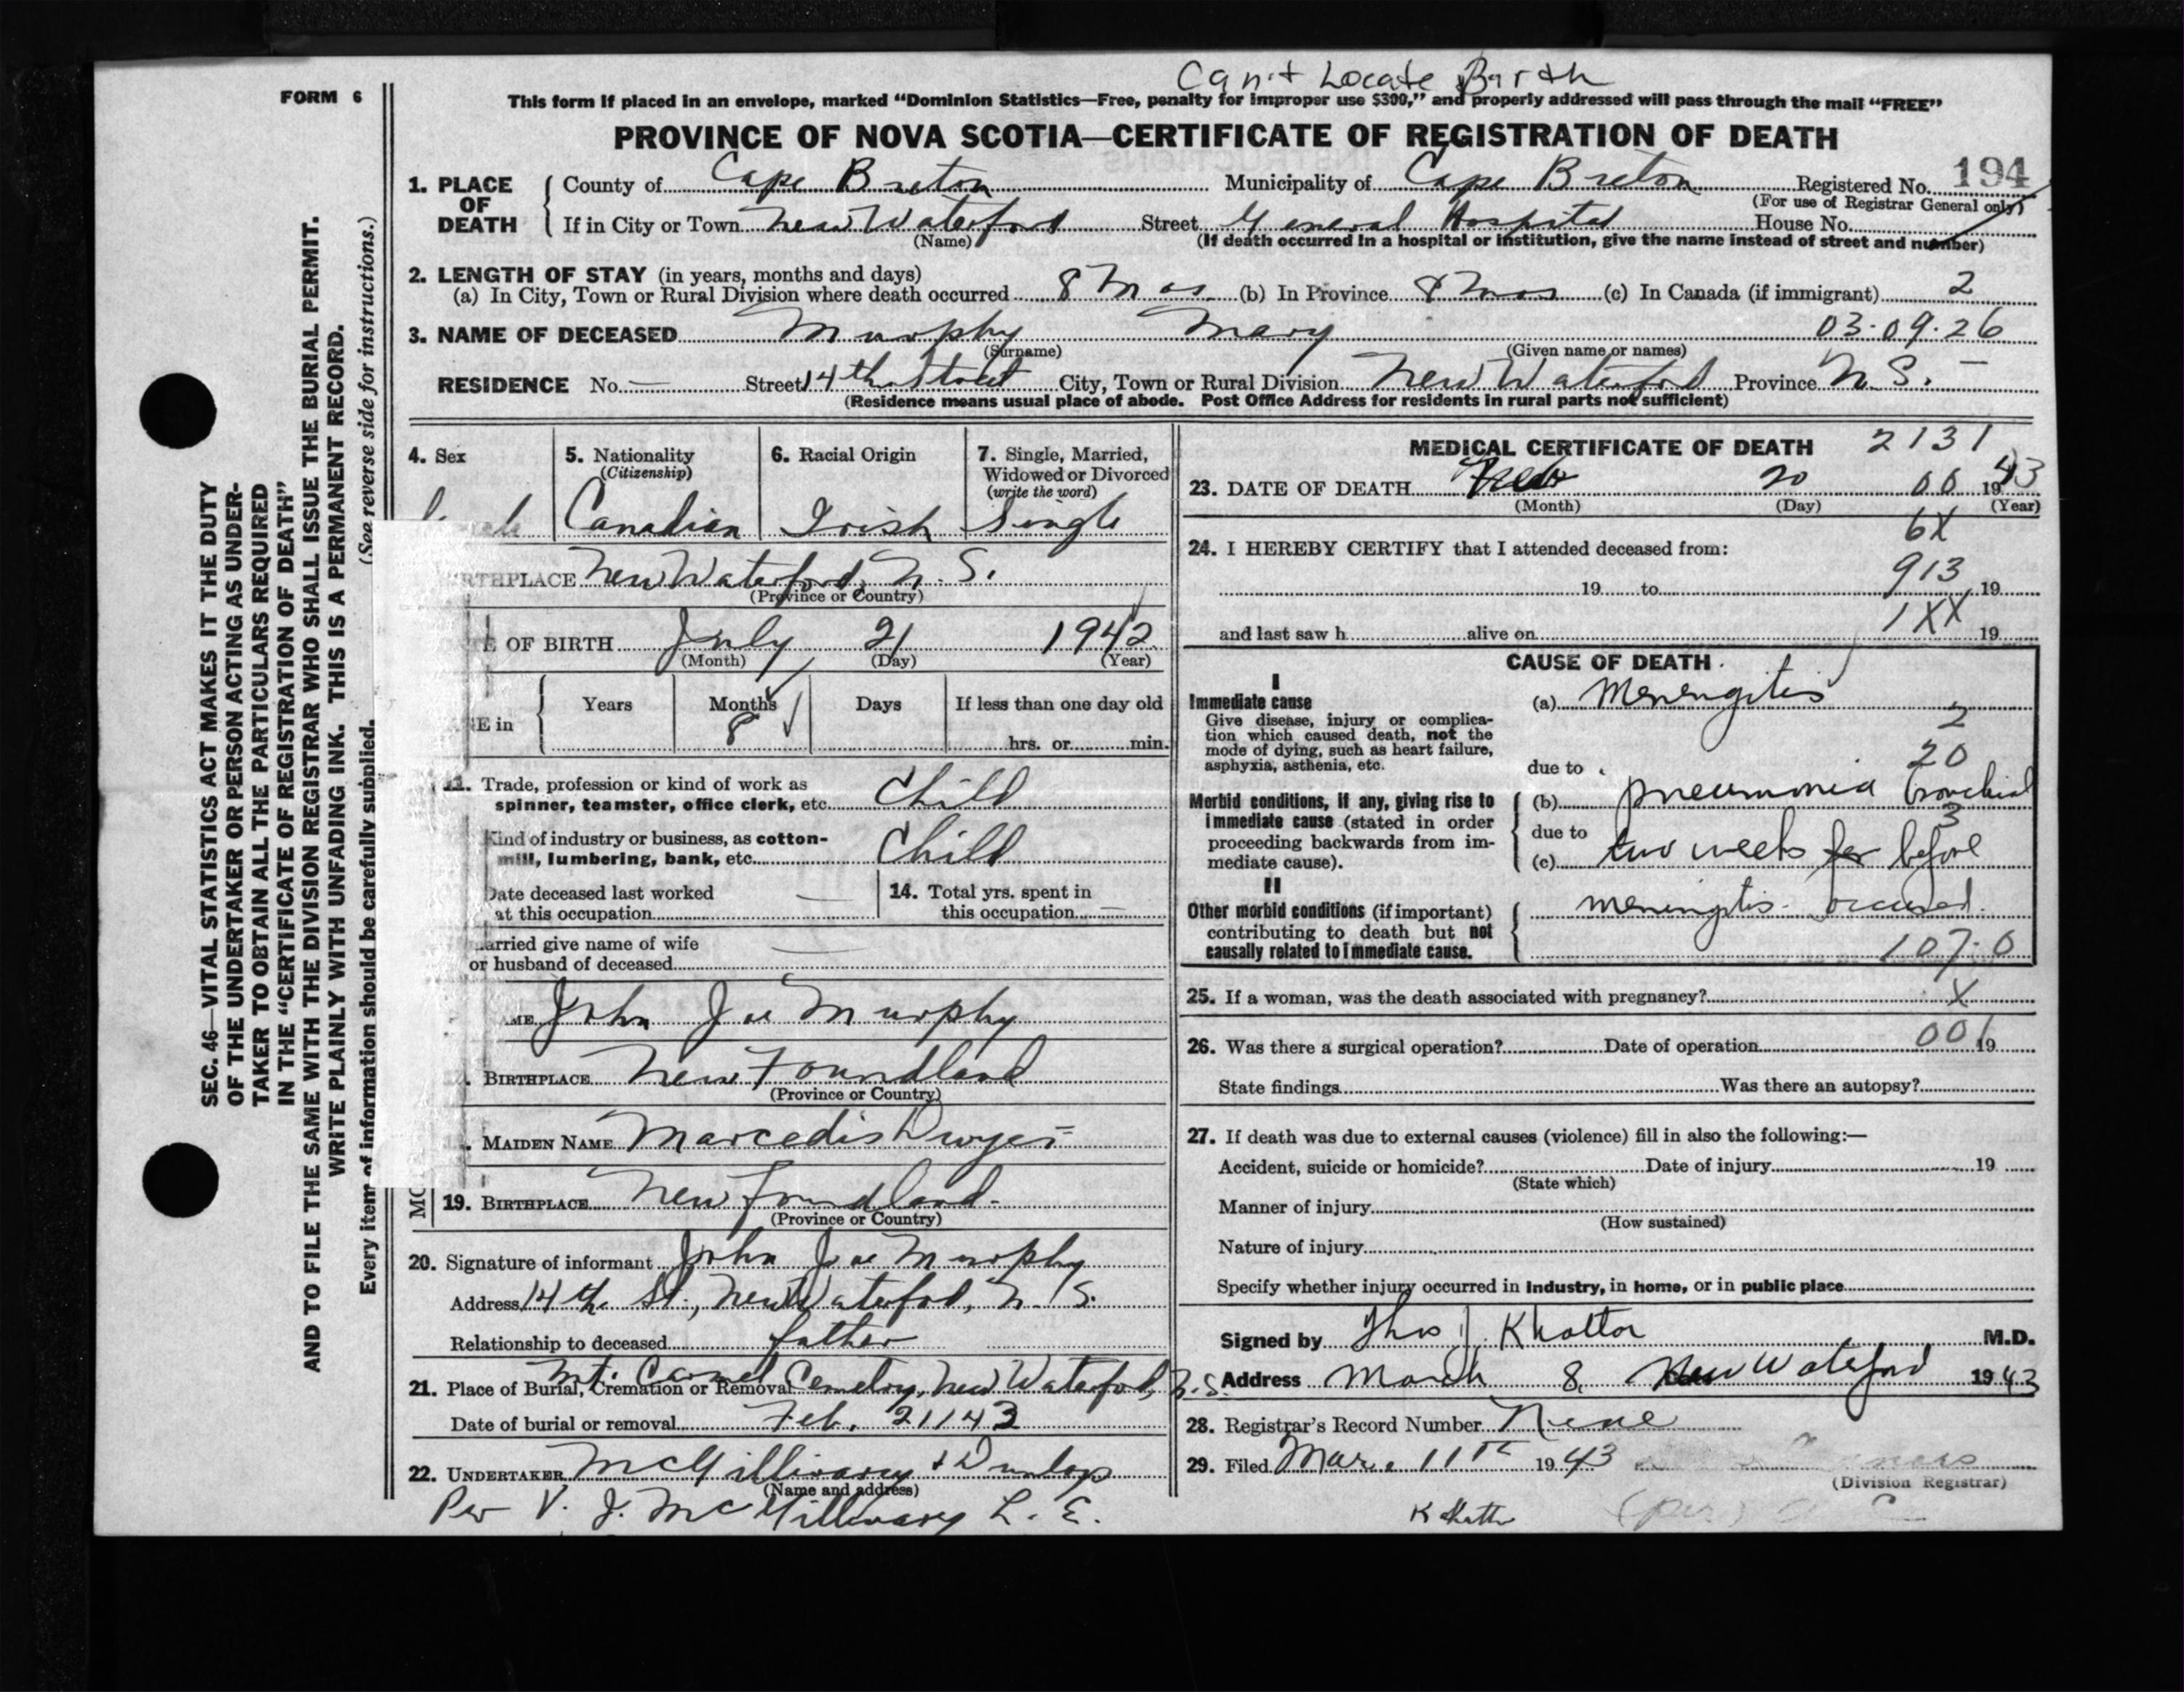 Can't Locate Birth
FORM 6
This form if placed in an envelope, marked “Dominion Statistics—Free, penalty for improper use $300,” and properly addressed will pass through the mail “FREE”
PROVINCE OF NOVA SCOTIA—CERTIFICATE OF REGISTRATION OF DEATH
1. PLACE OF DEATH { County of Cape Breton Municipality of Cape Breton Registered No. 194
(For use of Registrar General only)
If in City or Town New Waterford Street General Hospital House No.
(Name) (If death occurred in a hospital or institution, give the name instead of street and number)
2. LENGTH OF STAY (in years, months and days)
(a) In City, Town or Rural Division where death occurred 8 Mos (b) In Province 8 mos (c) In Canada (if immigrant) 2
3. NAME OF DECEASED Murphy Mary 03-09-26
(Surname) (Given name or names)
RESIDENCE No. — Street 14th Street City, Town or Rural Division New Waterford Province N.S. —
(Residence means usual place of abode. Post Office Address for residents in rural parts not sufficient)
SEC. 46—VITAL STATISTICS ACT MAKES IT THE DUTY
OF THE UNDERTAKER OR PERSON ACTING AS UNDER-
TAKER TO OBTAIN ALL THE PARTICULARS REQUIRED
IN THE “CERTIFICATE OF REGISTRATION OF DEATH”
AND TO FILE THE SAME WITH THE DIVISION REGISTRAR WHO SHALL ISSUE THE BURIAL PERMIT.
WRITE PLAINLY WITH UNFADING INK. THIS IS A PERMANENT RECORD.
Every item of information should be carefully supplied. (See reverse side for instructions.)
4. Sex 5. Nationality 6. Racial Origin 7. Single, Married,
(Citizenship) Widowed or Divorced
(write the word)
Canadian Irish Single
RTHPLACE New Waterford, N.S.
(Province or Country)
E OF BIRTH July 21 1942
(Month) (Day) (Year)
Years Months Days If less than one day old
E in 8 hrs. or min.
11. Trade, profession or kind of work as
spinner, teamster, office clerk, etc. Child
Kind of industry or business, as cotton-
mill, lumbering, bank, etc. Child
Date deceased last worked 14. Total yrs. spent in
at this occupation — this occupation —
arried give name of wife
or husband of deceased —
AME John Joe Murphy
BIRTHPLACE New Foundland
(Province or Country)
MAIDEN NAME Marcedis Dwyer
MO
19. BIRTHPLACE New Foundland
(Province or Country)
20. Signature of informant John Joe Murphy
Address 14th St., New Waterford, N.S.
Relationship to deceased father
21. Place of Burial, Cremation or Removal Mt. Carmel Cemetery, New Waterford, N.S.
Date of burial or removal Feb. 21/43
22. UNDERTAKER McGillivary & Dunlop
(Name and address)
Per V. J. McGillivary L.E.
MEDICAL CERTIFICATE OF DEATH 2131
23. DATE OF DEATH Feb 20 00 1943
(Month) (Day) (Year)
6X
24. I HEREBY CERTIFY that I attended deceased from:
913
19 to 19
1XX
and last saw h alive on 19
CAUSE OF DEATH
I
Immediate cause (a) Menengitis
Give disease, injury or complica-
tion which caused death, not the 2
mode of dying, such as heart failure,
asphyxia, asthenia, etc. due to 20
Morbid conditions, if any, giving rise to (b) pneumonia bronchial
immediate cause (stated in order due to 3
proceeding backwards from im-
mediate cause). (c) two weeks for before
II
Other morbid conditions (if important) meningitis occured
contributing to death but not
causally related to immediate cause. 107-0
25. If a woman, was the death associated with pregnancy? X
26. Was there a surgical operation? Date of operation 001 19
State findings Was there an autopsy?
27. If death was due to external causes (violence) fill in also the following:—
Accident, suicide or homicide? Date of injury 19
(State which)
Manner of injury
(How sustained)
Nature of injury
Specify whether injury occurred in industry, in home, or in public place
Signed by Thos J. Khattar M.D.
Address March 8, New Waterford 1943
28. Registrar's Record Number Nine
29. Filed Mar. 11th 1943
(Division Registrar)
Khattar (per)